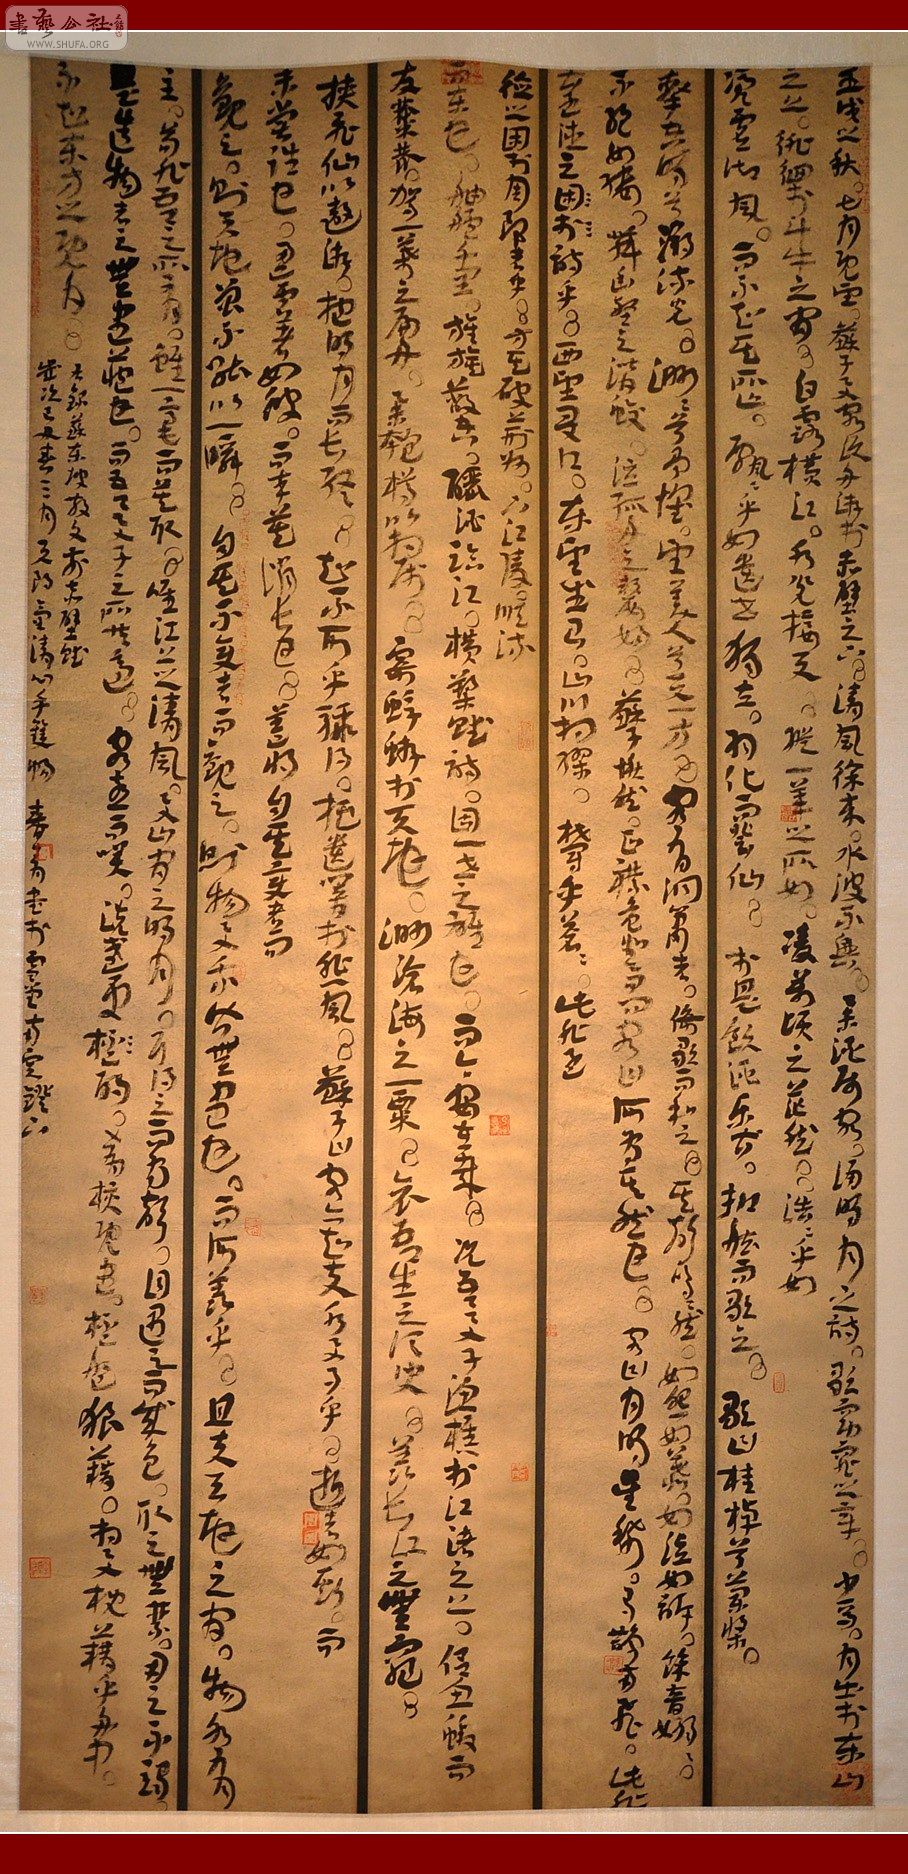 書藝公社
WWW.SHUFA.ORG
壬戌之秋。七月既望。蘇子與客泛舟遊於赤壁之下。清風徐來。水波不興。舉酒屬客。誦明月之詩。歌窈窕之章。少焉。月出於東山
之上。徘徊於斗牛之間。白露橫江。水光接天。縱一葦之所如。凌萬頃之茫然。浩浩乎如
馮虛御風。而不知其所止。飄飄乎如遺世獨立。羽化而登仙。於是飲酒樂甚。扣舷而歌之。歌曰桂棹兮蘭槳。
擊空明兮溯流光。渺渺兮予懷。望美人兮天一方。客有洞簫者。倚歌而和之。其聲嗚嗚然。如怨如慕。如泣如訴。餘音嫋嫋。
不絕如縷。舞幽壑之潛蛟。泣孤舟之嫠婦。蘇子愀然。正襟危坐而問客曰何為其然也。客曰月明星稀。烏鵲南飛。此非
孟德之困於詩乎。西望夏口。東望武昌。山川相繆。鬱乎蒼蒼。此非孟
德之困於周郎者乎。方其破荊州。下江陵。順流
而東也。舳艫千里。旌旗蔽空。釃酒臨江。橫槊賦詩。固一世之雄也。而今安在哉。況吾與子漁樵於江渚之上。侶魚蝦而
友麋鹿。駕一葉之扁舟。舉匏樽以相屬。寄蜉蝣於天地。渺滄海之一粟。哀吾生之須臾。羨長江之無窮。
挾飛仙以遨遊。抱明月而長終。知不可乎驟得。托遺響於悲風。蘇子曰客亦知夫水與月乎。逝者如斯。而
未嘗往也。盈虛者如彼。而卒莫消長也。蓋將自其變者而
觀之。則天地曾不能以一瞬。自其不變者而觀之。則物與我皆無盡也。而何羨乎。且夫天地之間。物各有
主。苟非吾之所有。雖一毫而莫取。惟江上之清風。與山間之明月。耳得之而為聲。目遇之而成色。取之無禁。用之不竭。
是造物者之無盡藏也。而吾與子之所共適。客喜而笑。洗盞更酌。肴核既盡。杯盤狼藉。相與枕藉乎舟中。
不知東方之既白。
右錄蘇東坡散文前赤壁賦
歲次己丑春三月